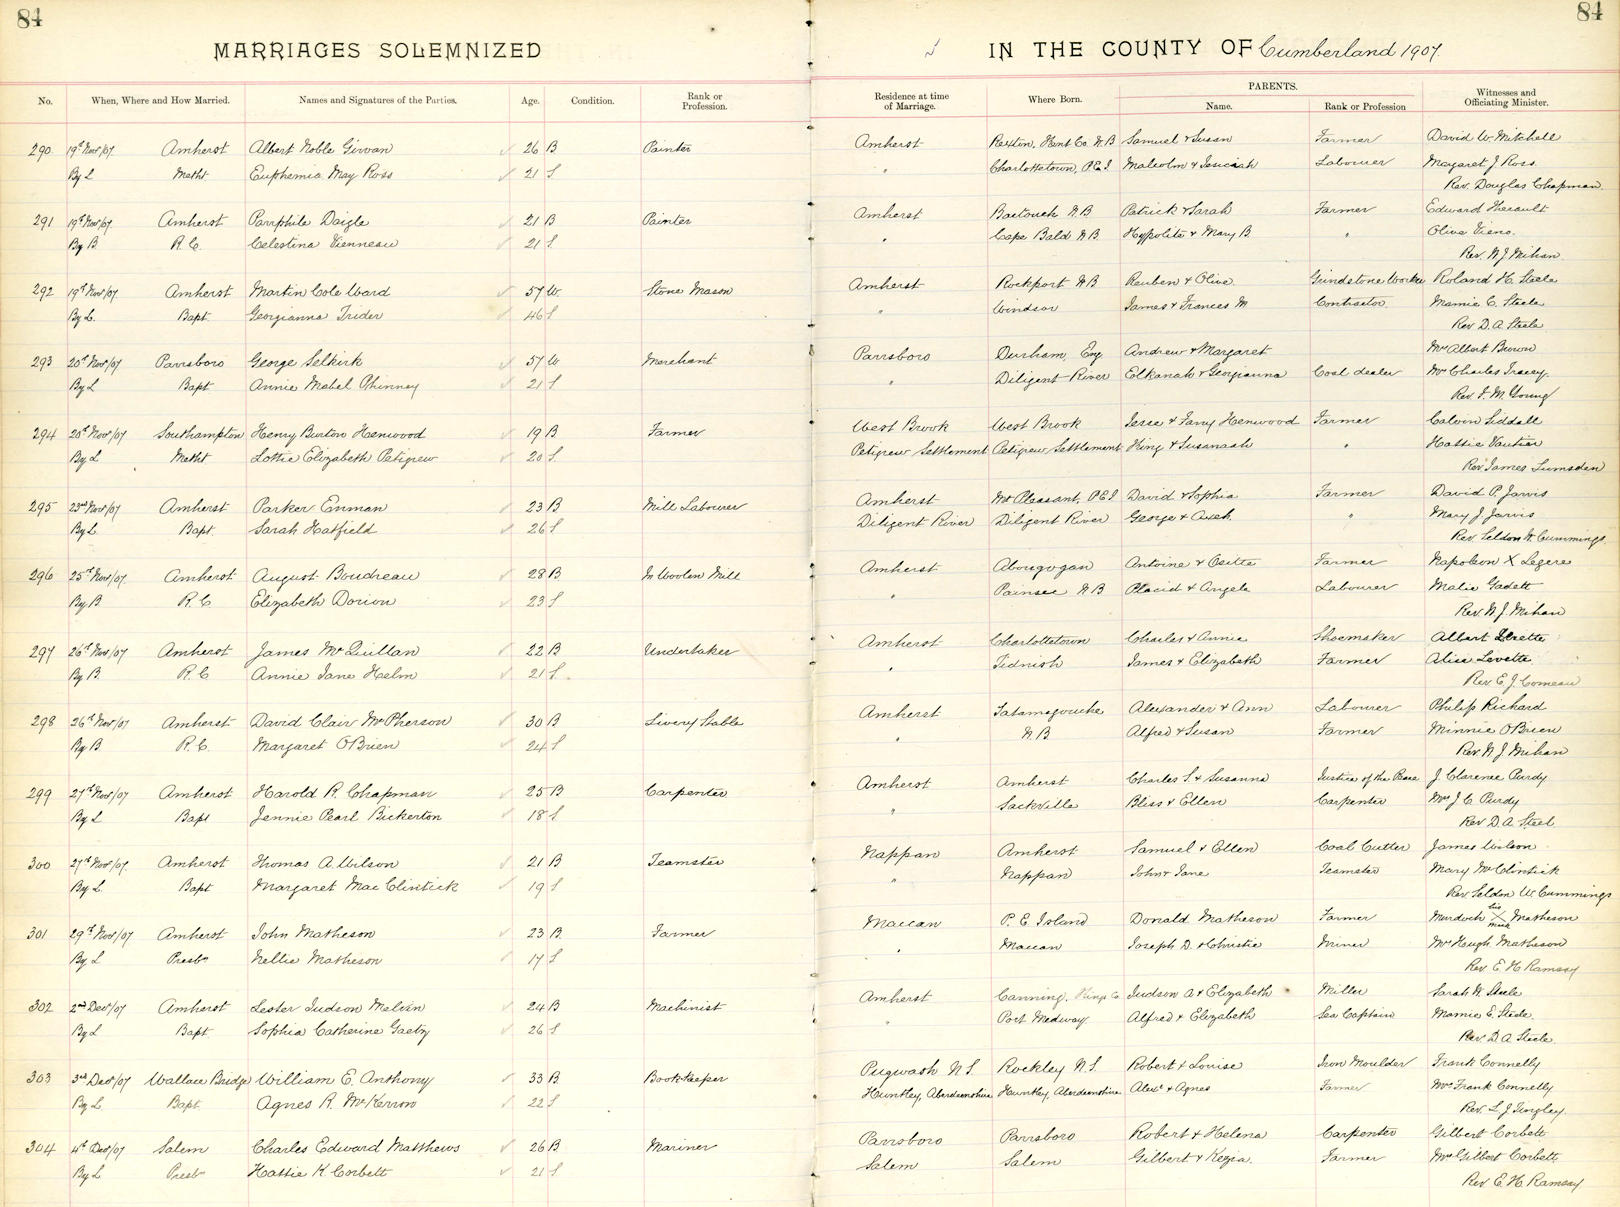 84
84
MARRIAGES SOLEMNIZED
IN THE COUNTY OF Cumberland 1907.
No. When, Where and How Married. Names and Signatures of the Parties. Age. Condition. Rank or Profession. Residence at time of Marriage. Where Born. PARENTS. Name. Rank or Profession Witnesses and Officiating Minister.
290 19th Nov/07 Amherst Albert Noble Girvan 26 B Painter Amherst Rexton, Kent Co. N.B Samuel & Susan Farmer David W. Mitchell
By L Metht Euphemia May Ross 21 S " Charlottetown, P.E.I Malcolm & Labourer Margaret J Ross
Rev. Douglas Chapman
291 19th Nov/07 Amherst Parrphile Daigle 21 B Painter Amherst Buctouch N.B Patrick & Sarah Farmer Edward Therault
By B R.C. Celestina Vienneau 21 S " Cape Bald N.B. Hyppolite & Mary B. " Olive Vieno.
Rev. N. J Mihan
292 19th Nov/07 Amherst Martin Cole Ward 57 W. Stone Mason Amherst Rockport N.B Reuben & Olive Grindstone Worker Roland H. Steele
By L. Bapt Georgianna Trider 46 S " Windsor James & Frances M Contractor Mamie E. Steele
Rev D. A. Steele
293 20th Nov/07 Parrsboro George Selkirk 57 W Merchant Parrsboro Durham, Eng Andrew & Margaret Mrs Albert Brown
By L Bapt Annie Mabel Phinney 21 S " Diligent River Elkanah & Georgianna Coal dealer Mrs Charles Tracey.
Rev. F. M. Young
294 20th Nov/07 Southampton Henry Burton Henwood 19 B Farmer West Brook West Brook Jesse & Fanny Henwood Farmer Calvin Siddall
By L Metht Lottie Elizabeth Petigrew 20 S. Petigrew Settlement Petigrew Settlement King & Susanaah " Hattie Vautier
Rev. James Lumsden
295 23rd Nov/07 Amherst Parker Enman 23 B Mill Labourer Amherst Mt Pleasant, P.E.I David & Sophia Farmer David P. Jarvis
By L Bapt. Sarah Hatfield 26 S Diligent River Diligent River George & " Mary J. Jarvis
Rev. Seldon W. Cummings
296 25th Nov/07 Amherst August Boudreau 28 B In Woolen Mill Amherst Abougogan Antoine & Osite Farmer Napoleon X Legere
By B R.C Elizabeth Dorion 23 S " Painsec N.B Placid & Angele Labourer Malie Gadett
Rev. N. J. Mihan
297 26th Nov/07 Amherst James McQuillan 22 B Undertaker Amherst Charlottetown Charles & Annie Shoemaker Albert
By B. R.C Annie Jane Helm 21 S. " Tidnish James & Elizabeth Farmer Alice Levette
Rev. E. J. Comeau
298 26th Nov/07 Amherst David Clair McPherson 30 B Livery Stable Amherst Tatamagouche Alexander & Ann Labourer Philip Richard
By B R.C. Margaret OBrien 24 S " N.B Alfred & Susan Farmer Minnie OBrien
Rev. N. J. Mihan
299 27th Nov/07 Amherst Harold R. Chapman 25 B Carpenter Amherst Amherst Charles S. & Susanna Justice of the Peace J. Clarence Purdy
By L Bapt Jennie Pearl Bickerton 18 S. " Sackville Bliss & Ellen Carpenter Mrs J. C. Purdy
Rev. D. A. Steel
300 27th Nov/07. Amherst Thomas A. Wilson 21 B Teamster Nappan Amherst Samuel & Ellen Coal Cutter James Wilson
By L. Bapt Margaret MacClintick 19 S " Nappan John & Jane Teamster Mary McClintick
Rev Seldon W. Cummings
301 29th Nov/07 Amherst John Matheson 23 B. Farmer Maccan P. E. Island Donald Matheson Farmer Murdoch his X mark Matheson
By L Presbn Nellie Matheson 17 S " Maccan Joseph D. & Christie Miner Mrs Hugh Matheson
Rev. E. H. Ramsay
302 2nd Dec/07 Amherst Lester Judson Melvin 24 B Machinist Amherst Canning, Kings Co. Judson A & Elizabeth Miller Sarah N. Steele
By L Bapt Sophia Catherine Gaeby 26 S " Port Medway Alfred & Elizabeth Sea Captain Mamie E. Steele.
Rev. D. A Steele.
303 3rd Dec/07 Wallace Bridge William E. Anthony 33 B Bookkeeper Pugwash N.S. Rockley N.S. Robert & Louise Iron Moulder Frank Connelly
By L Bapt. Agnes R. McKerrow 22 S Huntley, Aberdeenshire Huntley, Aberdeenshire Alexr & Agnes Farmer Mrs Frank Connelly
Rev. L. J. Tingley.
304 4th Dec/07 Salem Charles Edward Matthews 26 B. Mariner Parrsboro Parrsboro Robert & Helena Carpenter Gilbert Corbett
By L Presbn Hattie K. Corbett 21 S Salem Salem Gilbert & Kezia. Farmer Mrs Gilbert Corbett
Rev E. H. Ramsay